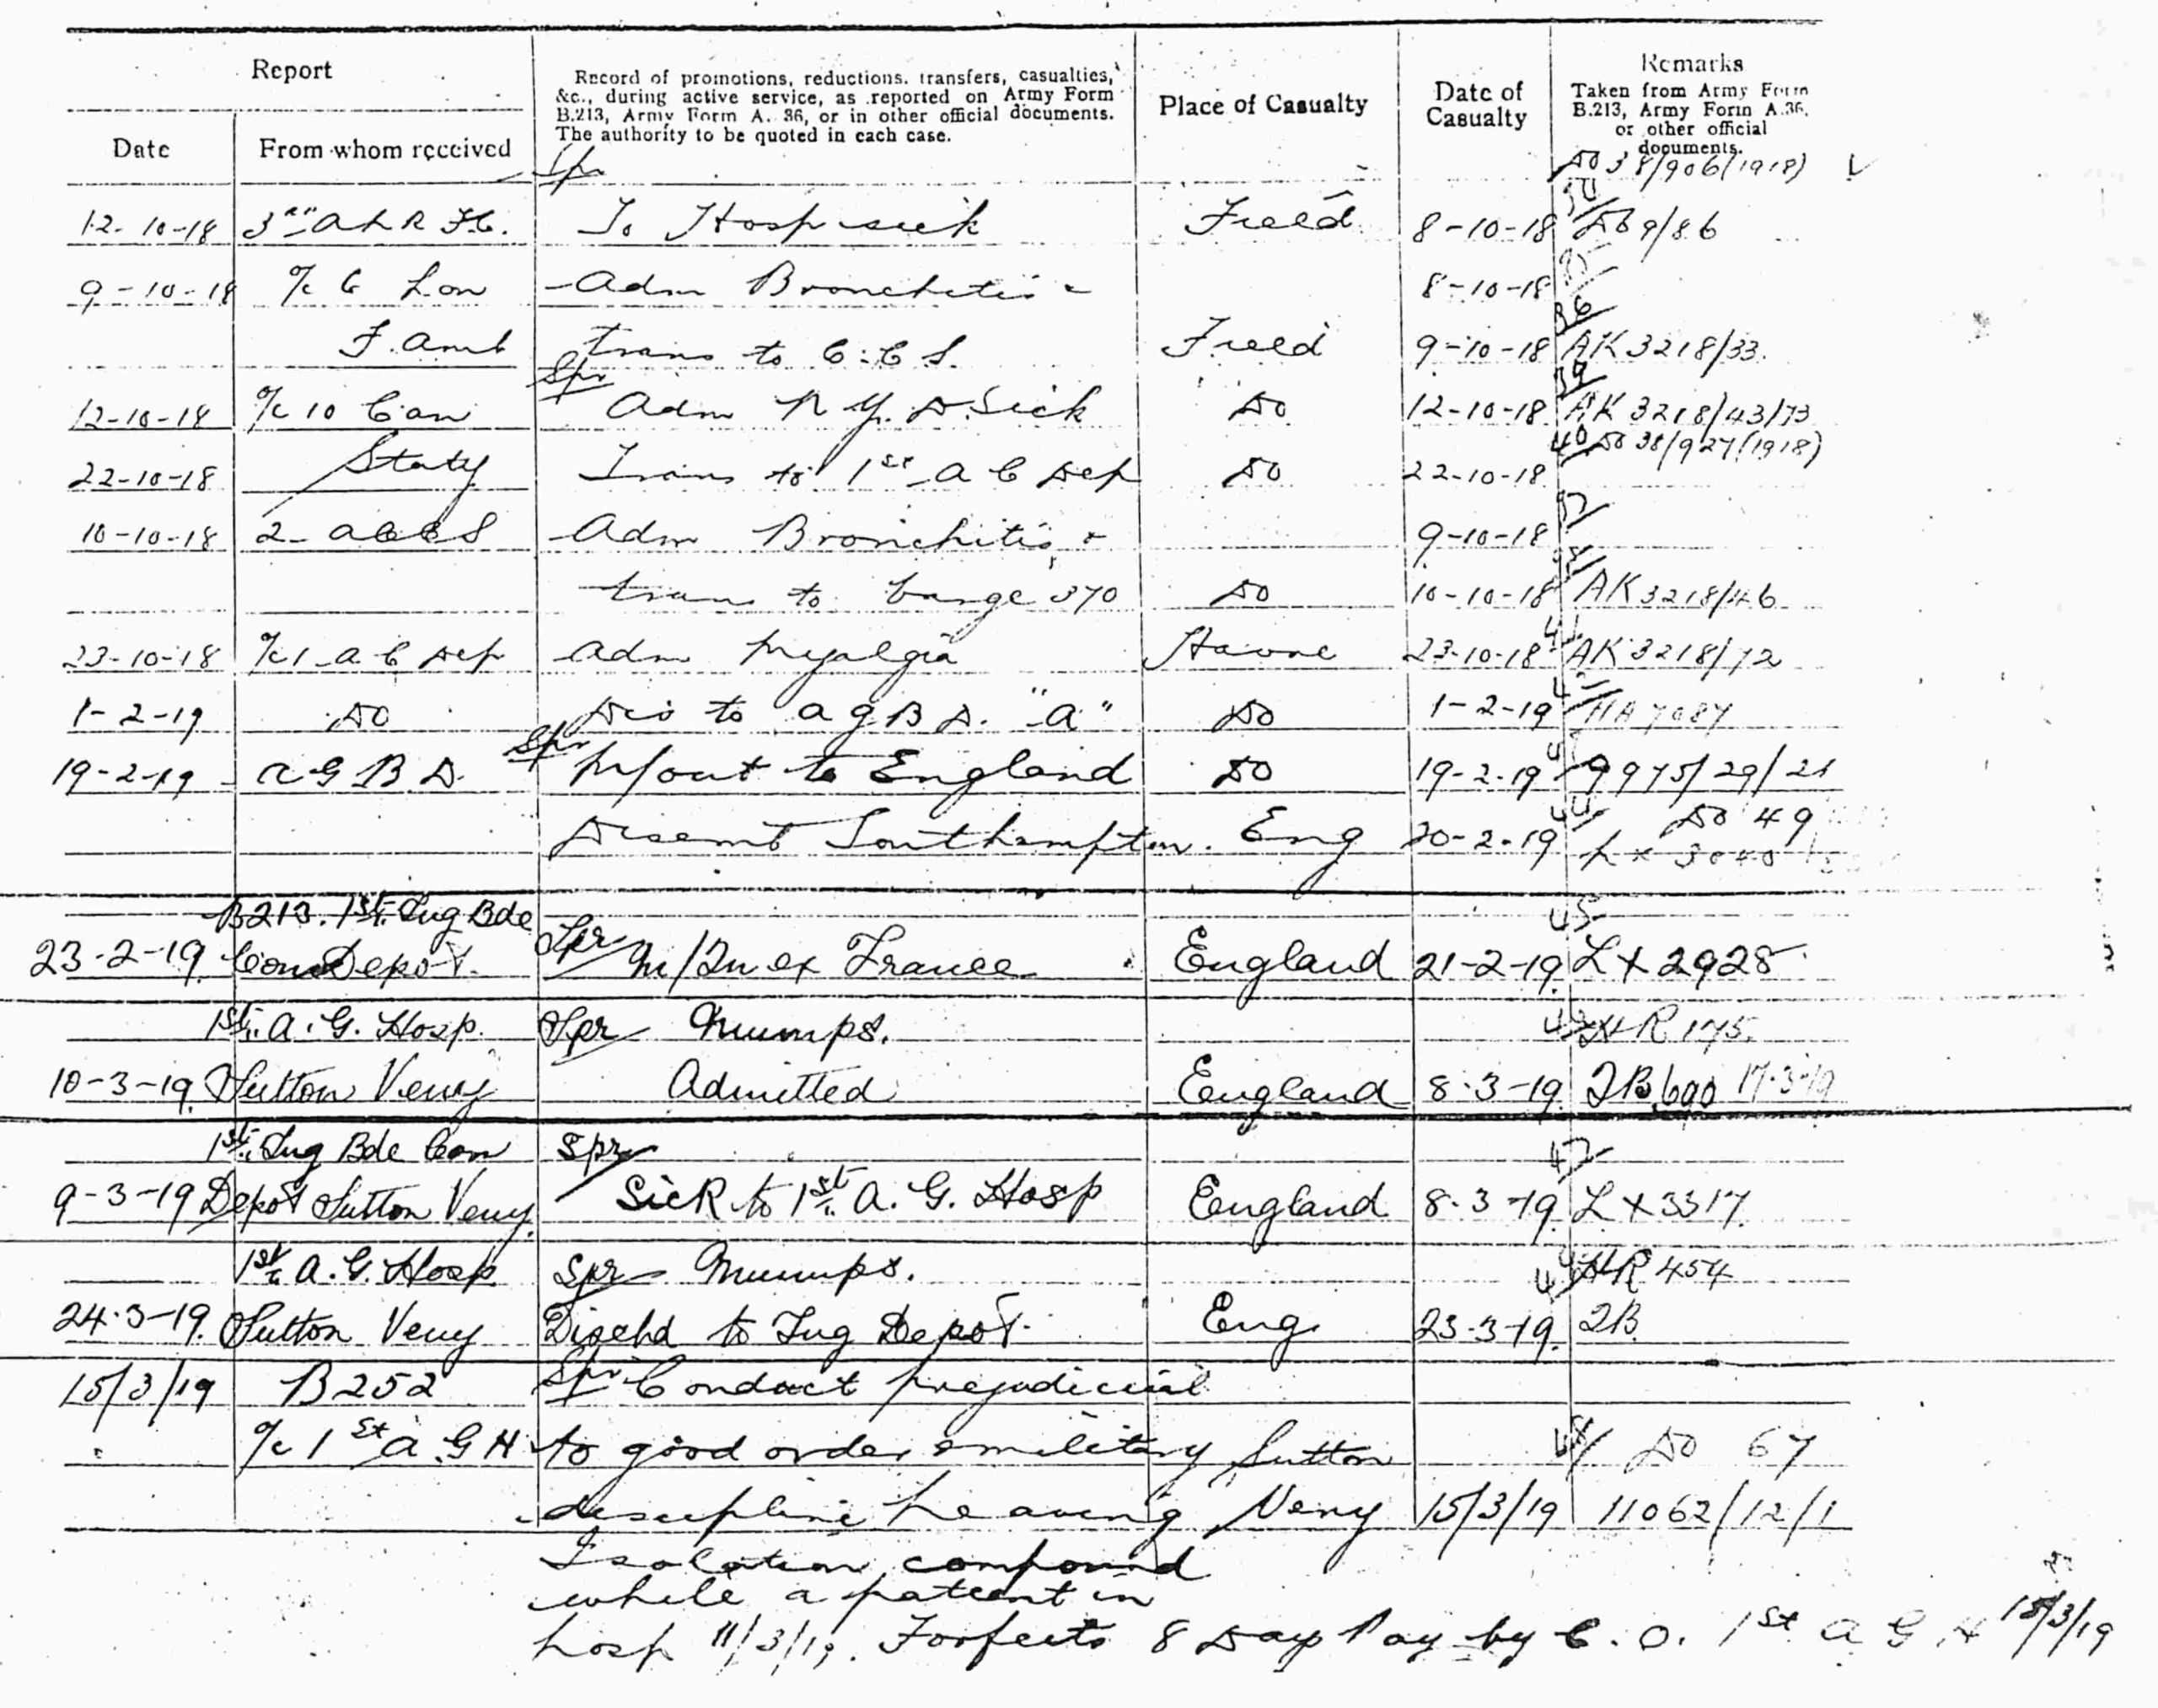 Report
Record of promotions, reductions, transfers, casualties,
&c., during active service, as reported on Army Form
B.213, Army Form A. 36, or in other official documents.
The authority to be quoted in each case.
Place of Casualty
Date of
Casualty
Remarks
Taken from Army Form
B.213, Army Form A.36,
or other official
documents.
Date From whom received
Spr DO 38/906(1918)
12-10-18 3rd A L R F.C. To Hosp sick Field 8-10-18 9/86
9-10-18 O/c 6 Lon Adm Bronchitis & 8-10-18
F. Amb trans to C.C.S. Field 9-10-18 36 AK 3218/33
12-10-18 O/c 10 Can Spr Adm N.Y.D. Sick Do 12-10-18 39 AK 3218/43/73
22-10-18 Staty Trans to 1st A C Dep Do 22-10-18 40 DO 38/927(1918)
10-10-18 2 ACCS Adm Bronchitis & 9-10-18 37
trans to barge 370 Do 10-10-18 AK 3218/46
23-10-18 O/c 1 A C Dep Adm Myalgia Havre 23-10-18 AK 3218/72
1-2-19 Do Dis to A G B D. "A" Do 1-2-19 HA 7087
19-2-19 A G B D. Spr M/out to England Do 19-2-19 9975/29/21
Disemb Southampton. Eng 20-2-19 44 DO 49
LX 3040
B213. 1st Trg Bde 45
23-2-19 Con Depot. Spr M/In ex France England 21-2-19 LX 2928
1st A.G. Hosp. Spr Mumps. HR 175.
10-3-19 Sutton Veny Admitted England 8-3-19 2B 690 17-3-19
1st Trg Bde Con Spr 47
9-3-19 Depot Sutton Veny. Sick to 1st A. G. Hosp England 8-3-19 LX 3317.
1st A.G. Hosp Spr Mumps. HR 454
24-3-19. Sutton Veny Dischd to Trg Depot. Eng. 23-3-19. 2B.
15/3/19 B252 Spr Conduct prejudicial
" O/c 1st A.G H to good order & military Sutton DO 67
discipline leaving Veny 15/3/19 11062/12/1
Isolation compound
while a patient in
hosp 11/3/19. Forfeits 8 Days Pay by C.O. 1st A G H 15/3/19